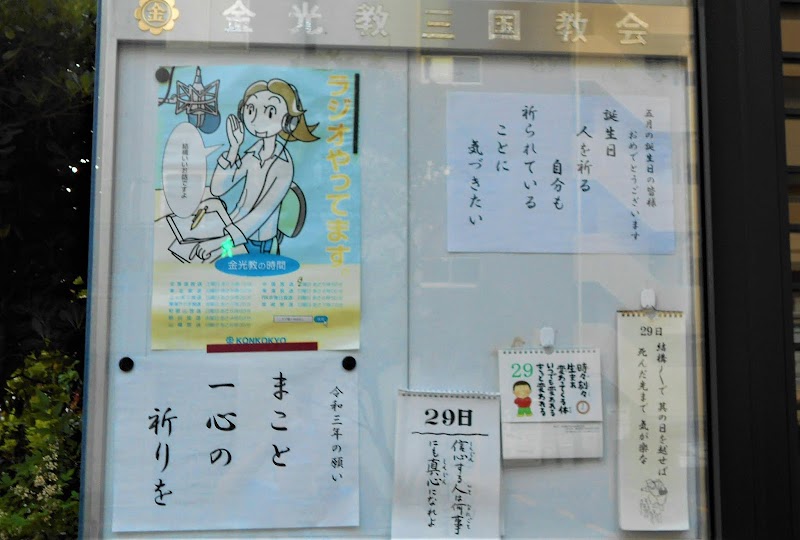 金
金光教三国教会
ラジオやってます。
結構いいお話ですよ
金光教の時間
KONKOKYO
五月の誕生日の皆様
おめでとうございます
誕生日
人を祈る
自分も
祈られている
ことに
気づきたい
令和三年の願い
まこと
一心の
祈りを
29日
信心する人は何事
にも真心になれよ
29
時々刻々
生まれ
変わってくる体
いつでも変われる
きっと変われる
29日
結構/\で 其の日を越せば
死んだ先まで 気が楽な